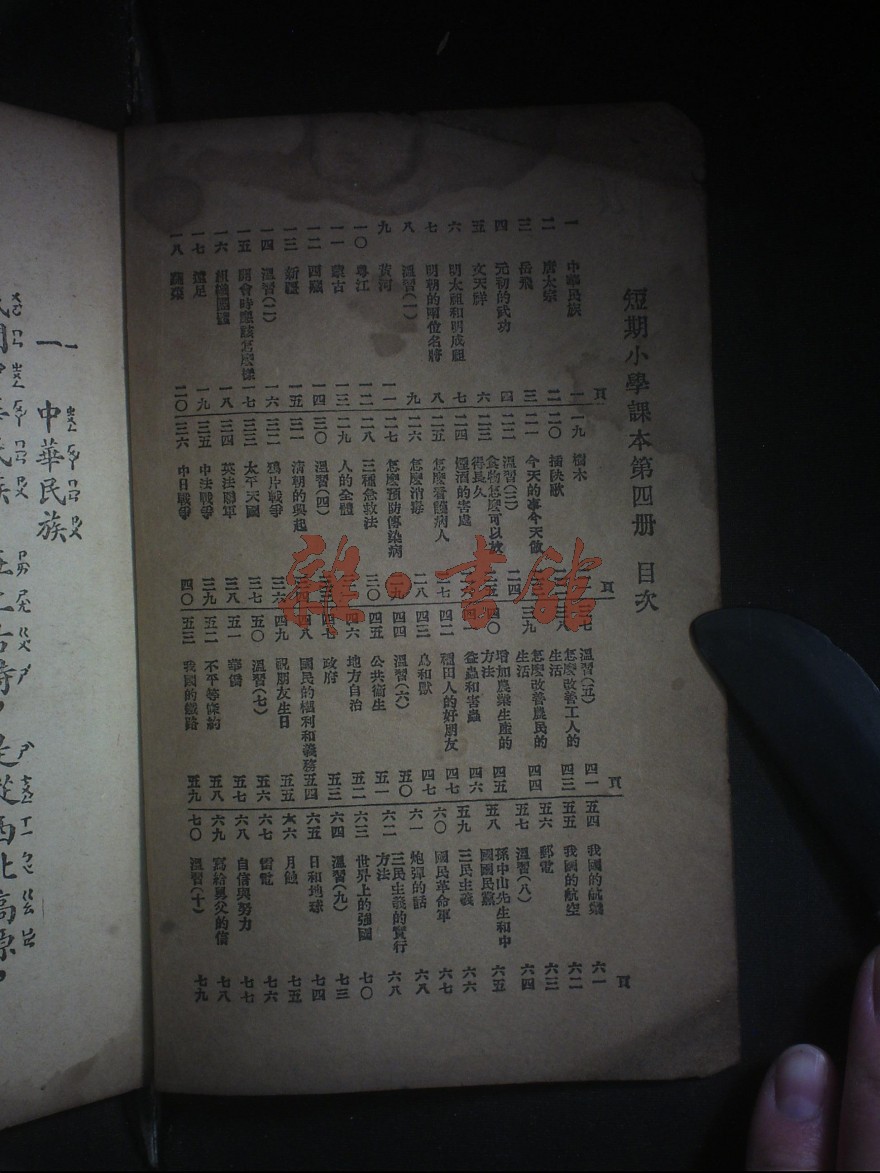 短期小學課本第四册 目次
頁
一 中華民族 一
二 唐太宗 二
三 岳飛 三
四 元初的武功 四
五 文天祥 六
六 明太祖和明成祖 七
七 明朝的兩位名將 八
八 溫習(一) 九
九 黃河 一一
一〇 粵江 一二
一一 蒙古 一三
一二 西藏 一四
一三 新疆 一五
一四 溫習(二) 一六
一五 開會時應該怎麼樣 一七
一六 組織團體 一八
一七 遠足 一九
一八 二〇
頁
一九 樹木
二〇 插秧歌
二一 今天的事今天做
二二 溫習(三) 二四
二三 食物怎麼可以放
得長久 二五
二四 煙酒的害處
二五 怎麼看護病人 二七
二六 怎麼消毒 二八
二七 怎麼預防傳染病 二九
二八 三種急救法 三〇
二九 人的全體
三〇 溫習(四) 三三
三一 清朝的興起
三二 鴉片戰爭 三六
三三 太平天國 三七
三四 英法聯軍 三八
三五 中法戰爭 三九
三六 中日戰爭 四〇
頁
三七 溫習(五) 四一
三八 怎麼改善工人的
生活 四三
三九 怎麼改善農民的
生活 四四
四〇 增加農業生產的
方法 四五
四一 益蟲和害蟲 四六
四二 種田人的好朋友 四七
四三 鳥和獸 四七
四四 溫習(六) 五〇
四五 公共衞生 五一
四六 地方自治 五二
四七 政府 五三
四八 國民的權利和義務 五四
四九 祝朋友生日 五五
五〇 溫習(七) 五六
五一 華僑 五七
五二 不平等條約 五八
五三 我國的鐵路 五九
頁
五四 我國的航業 六一
五五 我國的航空 六二
五六 郵電 六三
五七 溫習(八) 六四
五八 孫中山先生和中
國國民黨 六五
五九 三民主義 六六
六〇 國民革命軍 六七
六一 炮彈的話 六八
六二 三民主義的實行
方法 六八
六三 世界上的強國 七〇
六四 溫習(九) 七三
六五 日和地球 七四
六六 月蝕 七五
六七 雷電 七六
六八 自信與努力 七七
六九 寫給舅父的信 七八
七〇 溫習(十) 七九
雜·書館
一 中華民族
是從西北高原，